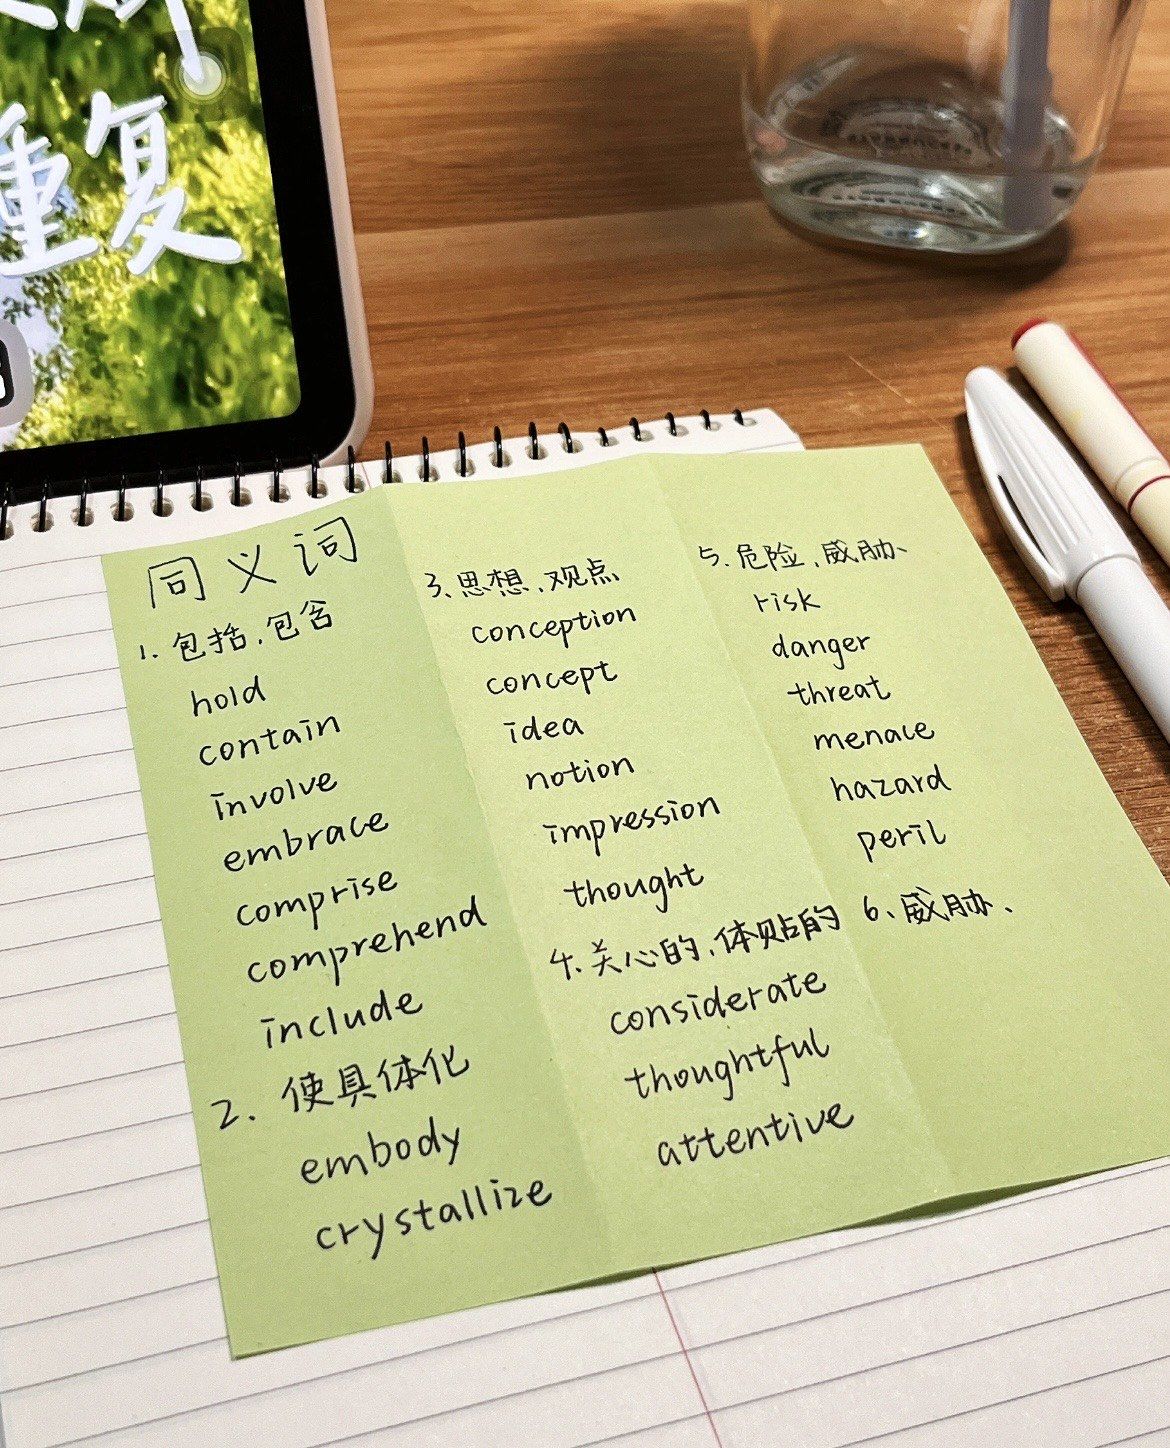 重复
同义词
1. 包括、包含
hold
contain
involve
embrace
comprise
comprehend
include
2. 使具体化
embody
crystallize
3、思想、观点
conception
concept
idea
notion
impression
thought
4. 关心的、体贴的
considerate
thoughtful
attentive
5. 危险、威胁、
risk
danger
threat
menace
hazard
peril
6、威胁、